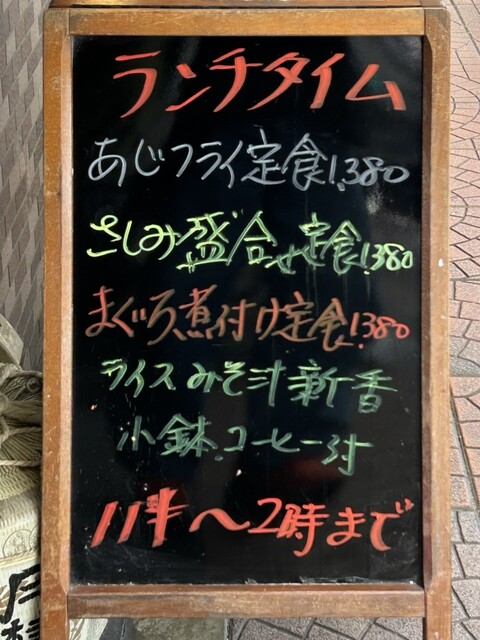 ランチタイム
あじフライ定食1.380
さしみ盛合せ定食1.380
まぐろ煮付け定食1.380
ライスみそ汁新香
小鉢.コーヒー付
11半〜2時まで